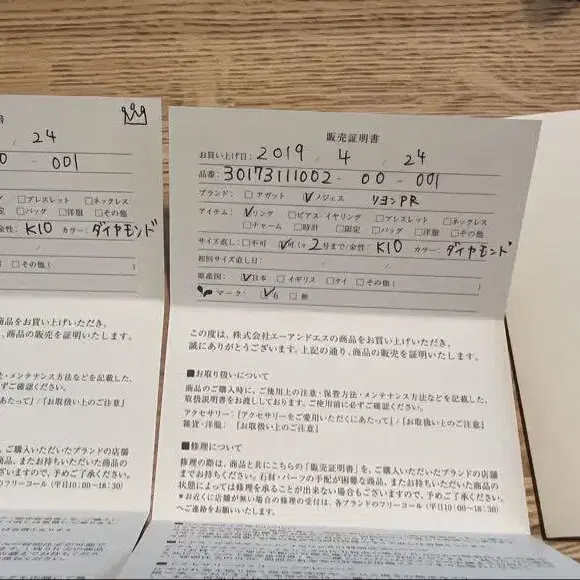 24
001
□ブレスレット □ネックレス
□バッグ □洋服 □その他
金性: K10 カラー: ダイヤモンド
□その他( )
商品をお買い上げいただき、
商品の販売を証明いたします。
・メンテナンス方法などを記載した、
必ずご確認ください。
あたって」/「お取扱い上のご注意」
ご購入いただいたブランドの店舗
商品、またお持ちいただいた商品の
ざいますので、予めご了承ください。
のフリーコール(平日10:00〜18:30)
販売証明書
お買い上げ日: 2019 . 4 . 24
品番: 30173111002 - 00 - 001
ブランド: □アガット ☑ノジェス リヨンPR
アイテム: ☑リング □ピアス・イヤリング □ブレスレット □ネックレス
□チャーム □時計 □限定 □バッグ □洋服 □その他
サイズ直し: □不可 ☑可(± 2号まで) 金性: K10 カラー: ダイヤモンド
初回サイズ直し日:
原産国: ☑日本 □イギリス □タイ □その他( )
マーク: ☑有 □無
この度は、株式会社エーアンドエスの商品をお買い上げいただき、
誠にありがとうございます。上記の通り、商品の販売を証明いたします。
■お取り扱いについて
商品のご購入時に、ご使用上の注意・保管方法・メンテナンス方法などを記載した、
取扱説明書をお渡ししております。ご使用前に必ずご確認ください。
アクセサリー:「アクセサリーをご愛用いただくにあたって」/「お取扱い上のご注意」
雑貨・洋服: 「お取扱い上のご注意」
■修理について
修理の際は、商品と共にこちらの「販売証明書」を、ご購入いただいたブランドの店舗
までお持ちください。石材・パーツの手配が困難な商品、またお持ちいただいた商品の
状態によっては修理を承ることが出来ない場合もございますので、予めご了承ください。
*お近くに店舗が無い場合の修理の受付は、各ブランドのフリーコール(平日10:00〜18:30)
へご連絡をお願いいたします。